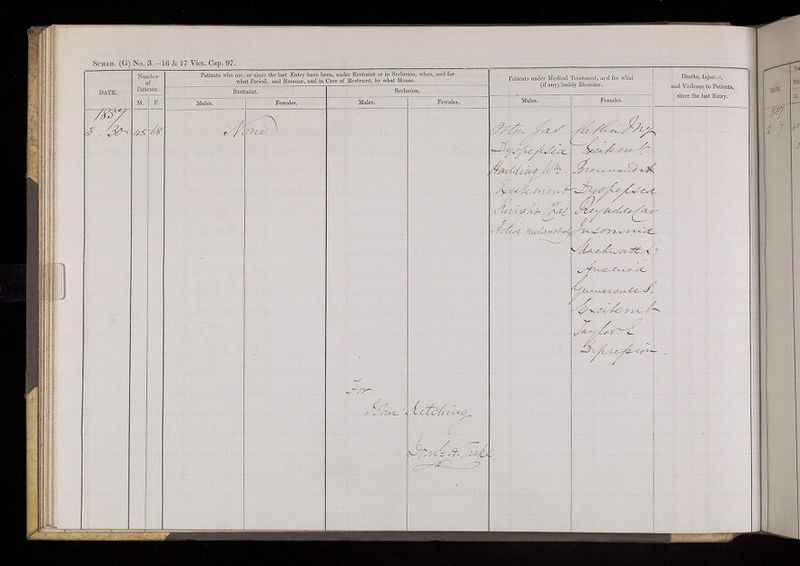 SCHED. (G) No. 3.—16 & 17 Vict. Cap. 97.
DATE.
Number of Patients.
M. F.
Patients who are, or since the last Entry have been, under Restraint or in Seclusion, when, and for
what Period, and Reasons, and in Case of Restraint, by what Means.
Restraint.
Seclusion.
Males. Females. Males. Females.
Patients under Medical Treatment, and for what
(if any) bodily Disorder.
Males. Females.
Deaths, Injuries,
and Violence to Patients,
since the last Entry.
1857
3 . 30 48 68 None
Orton Jas
Dyspepsia Excitemt
Harding Wm
Excitement Dyspepsia
Knight Chas
Active melancholy Insomnia
Mackworth
Anaemia
Excitemt
Taylor E
Depression
For
John Kitching
Danl H. Tuke